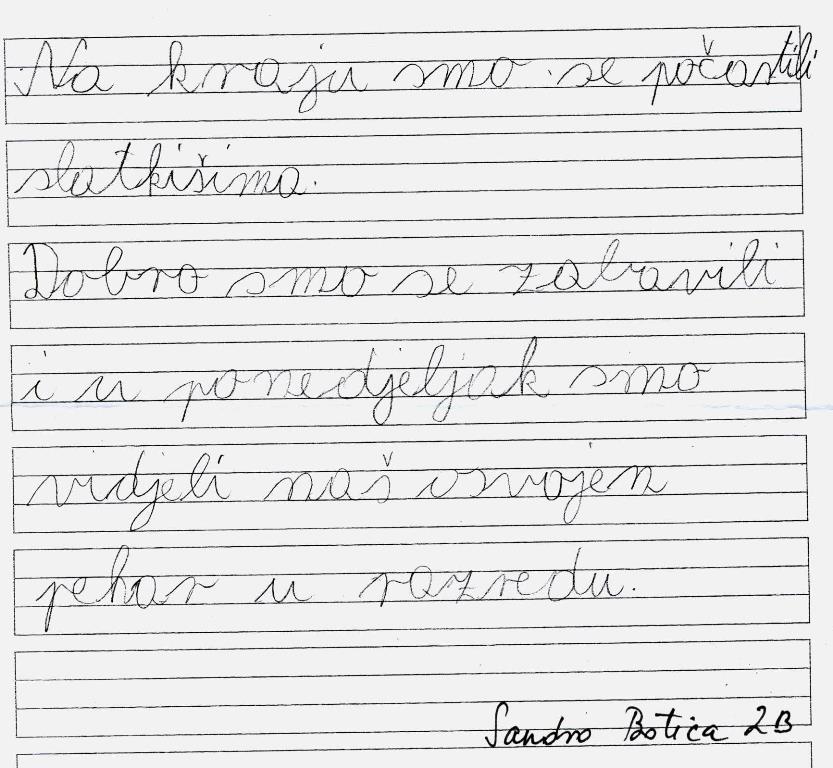 Na kraju smo se počastili
slatkišima.
Dobro smo se zabavili
i u ponedjeljak smo
vidjeli naš osvojen
pehar u razredu.
Sandro Botica 2B